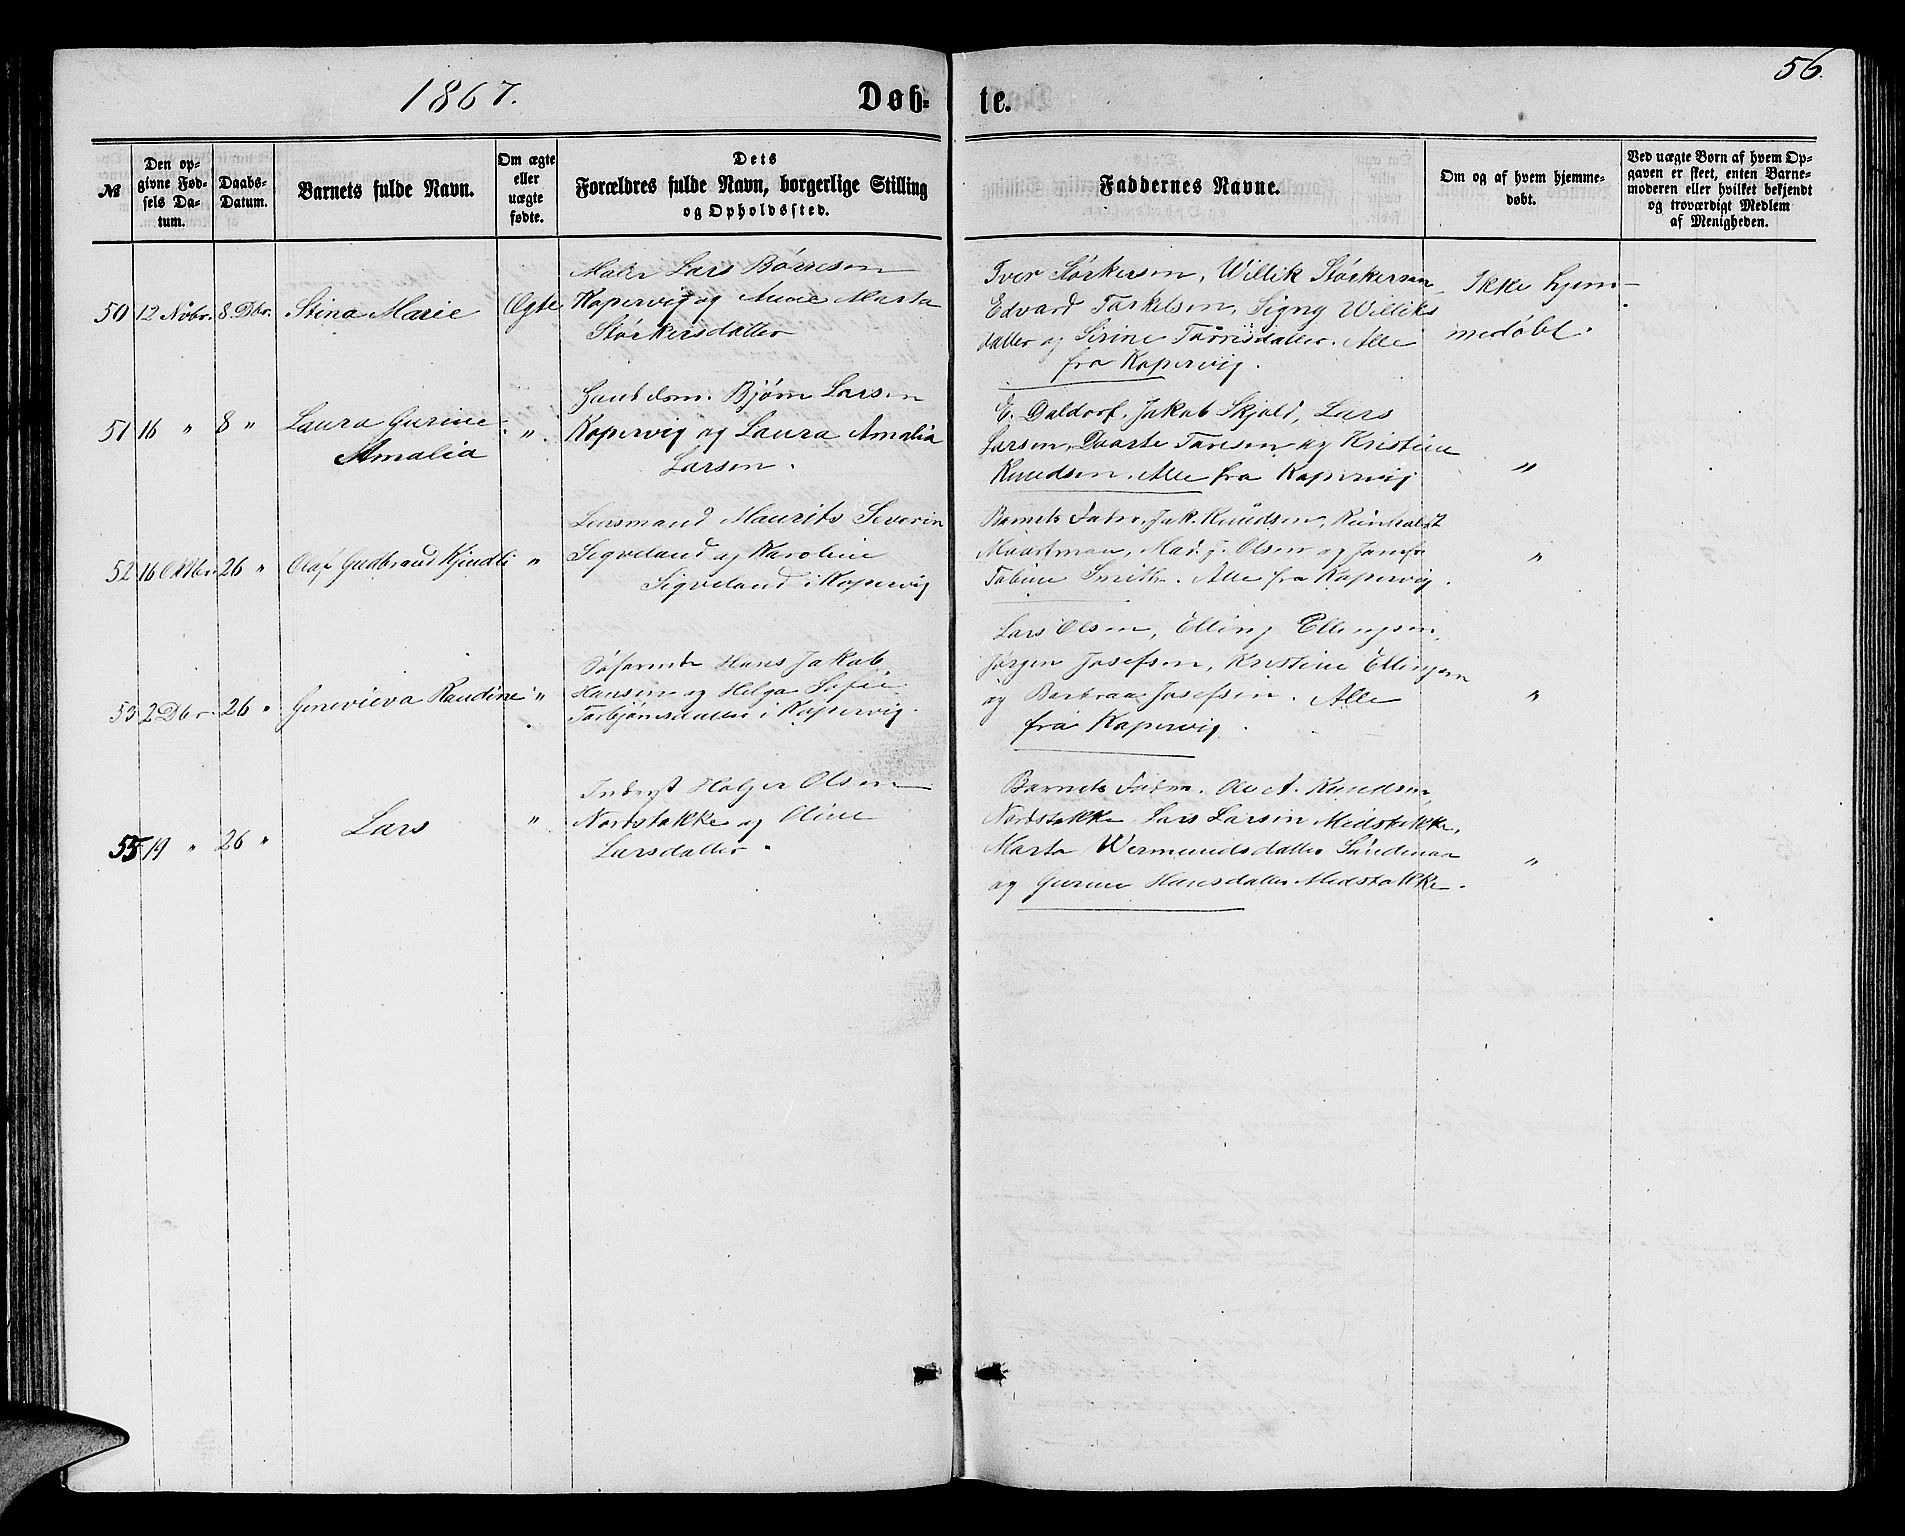 1867.
Døb-
te.
56.
№
Den op-
givne Fød-
sels Da-
tum.
Daabs-
Datum.
Barnets fulde Navn.
Om ægte
eller
uægte
fødte.
Dets
Forældres fulde Navn, borgerlige Stilling
og Opholdssted.
Faddernes Navne.
Om og af hvem hjemme-
døbt.
Ved uægte Børn af hvem Op-
gaven er skeet, enten Barne-
moderen eller hvilket bekjendt
og troværdigt Medlem
af Menigheden.
50
12 Novbr.
8. Dbr.
Stina Marie
Ægte
Maler Lars Børresen
Kopervig og Anne Marta
Størkersdatter
Iver Størkersen, Willik Størkersen
Edvard Tarkelsen, Signy Williks
datter og Sirine Tørrisdatter. Alle
fra Kopervig.
Ikke hjem-
medøbt.
51
16 "
8 "
Laura Gurine
Amalia
"
Bjørn Larsen
Kopervig og Laura Amalia
Larsen.
E. Daldorf, Jakob Skjold, Lars
Larsen, og Kristine
Knudsen. Alle fra Kopervig
"
52
16 Oktbr.
26 "
Olaf Gudbrand
"
Maurits Severin
Sigveland og Karoline
Sigveland i Kopervig
Barnets Fader, Jak. Knudsen,
Olsen og
Tobine Smith. Alle fra Kopervig.
"
53
2 Dbr.
26 "
Genevieva Randine
"
Hans Jakob
Hansen og Helga Sofie
Torbjørnsdatter i Kopervig.
Lars Olsen, Elling Ellingsen,
Jørgen Josefsen, Kristine Ellingsen
og Barbraa Josefsen. Alle
fra Kopervig.
"
55
19 "
26 "
Lars
"
Inderst Holger Olsen
Nordstokke og Oline
Larsdatter.
Barnets Fader. A. Knudsen,
Nordstokke Lars Larsen Midstokke,
Marta Wermundsdatter
og Gurine Hansdatter Midstokke.
"